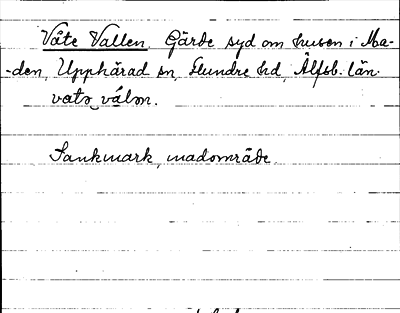 Våte Vallen. Gärde syd om husen i Ma-
-den, Upphärad sn, Flundre hd, Älfsb. län.
vatə válən.
Sankmark, madområde.